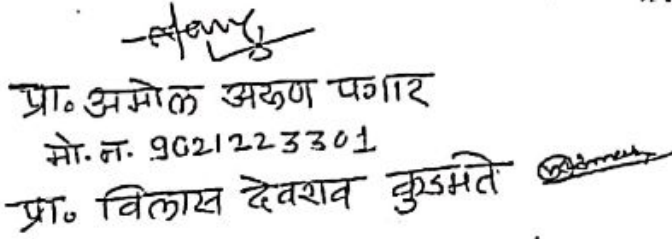 प्रा. अमोल अरुण पगार
मो. न. 9021223301
प्रा. विलास देवराव कुडमते